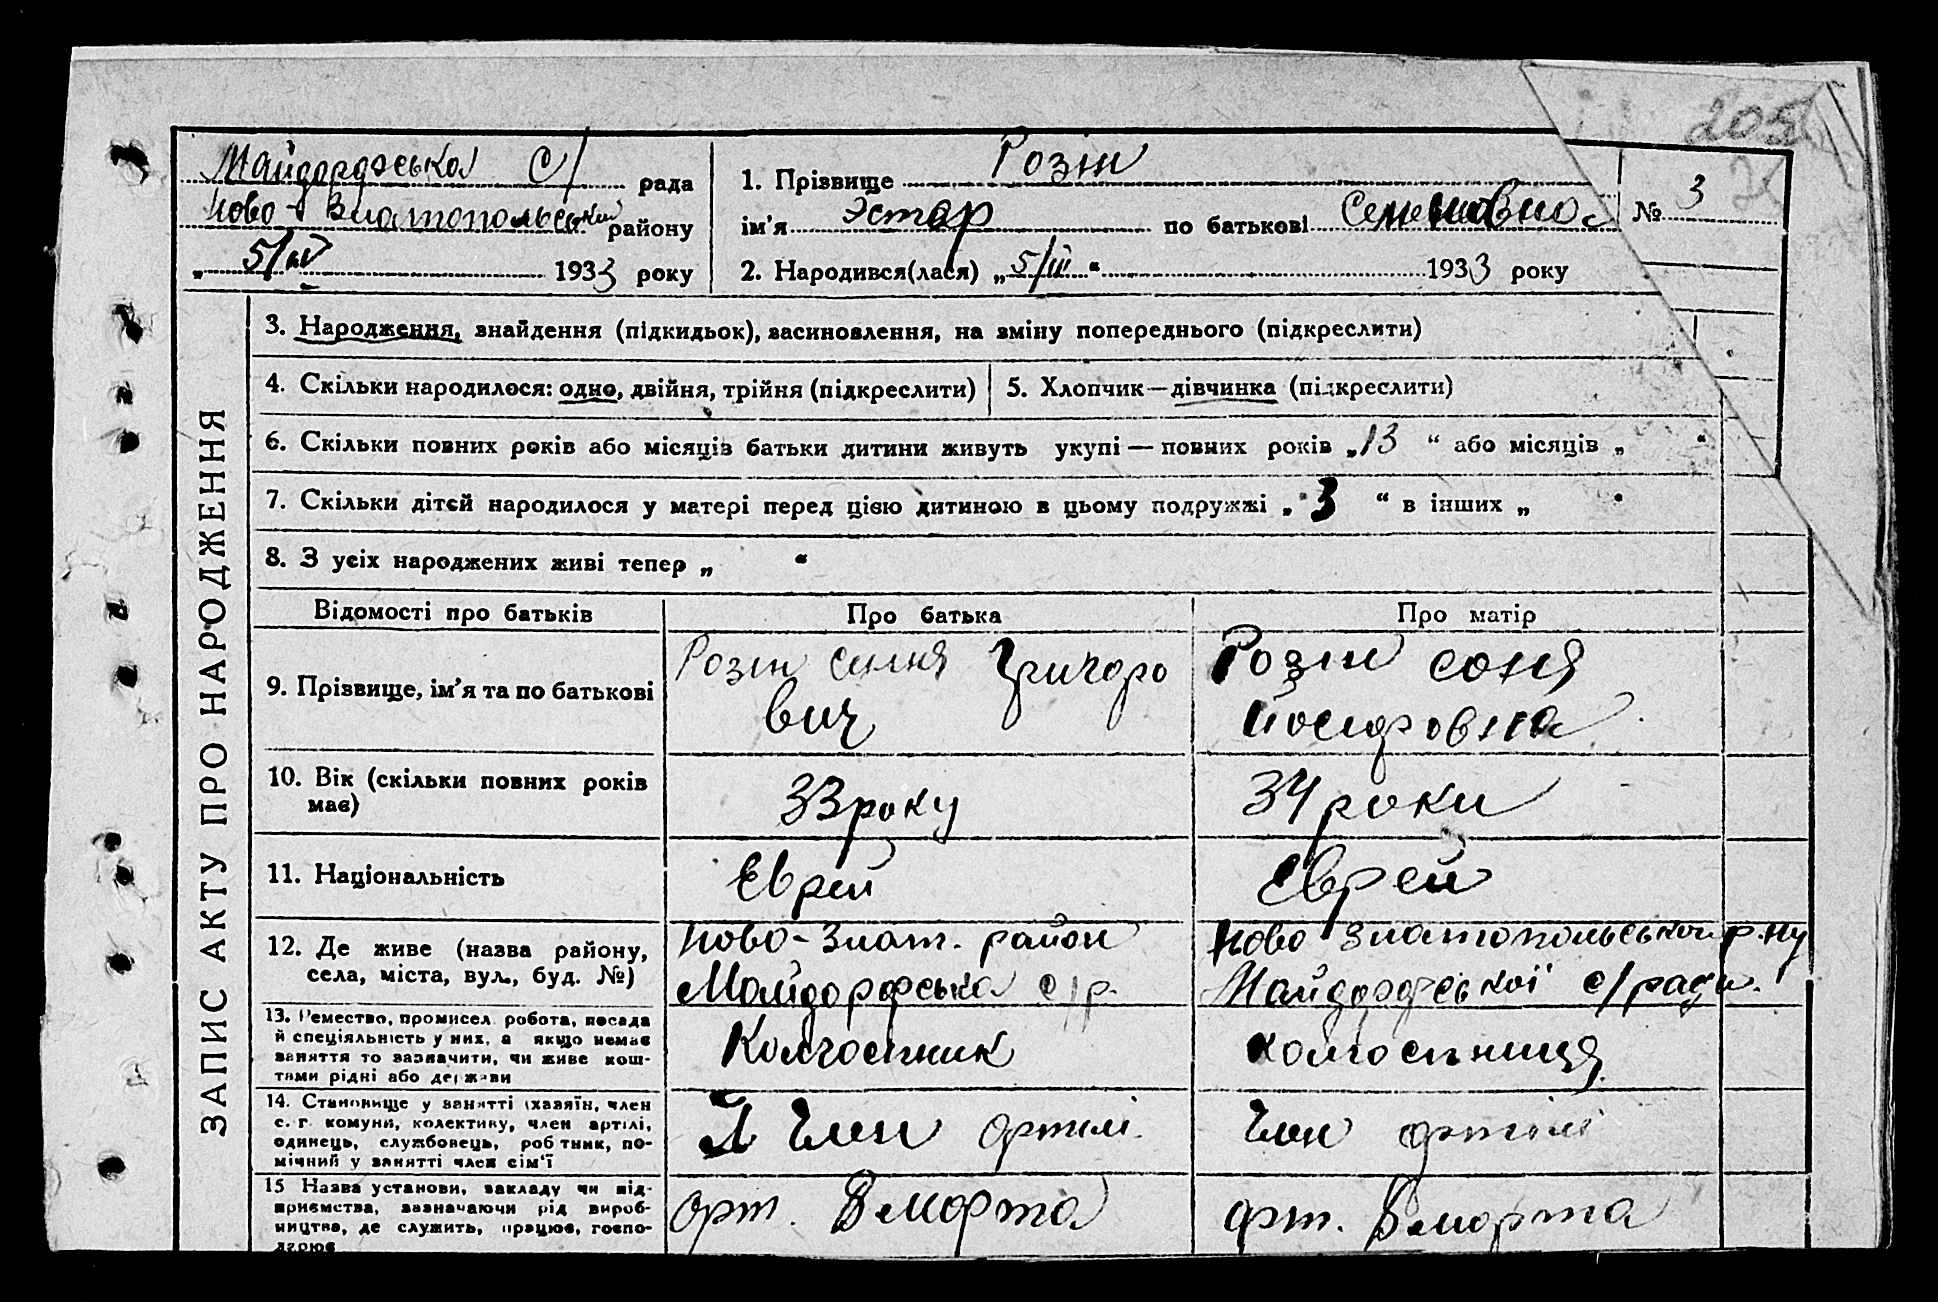 205
Майдорфська с/ рада
Ново-Златопольський району
„ 5/IV 1933 року
1. Прізвище Розін
ім'я Эстер по батькові Семеновна
2. Народився(лася) „ 5/III “ 1933 року
№ 3
ЗАПИС АКТУ ПРО НАРОДЖЕННЯ
3. Народження, знайдення (підкидьок), засиновлення, на зміну попереднього (підкреслити)
4. Скільки народилося: одно, двійня, трійня (підкреслити)
5. Хлопчик—дівчинка (підкреслити)
6. Скільки повних років або місяців батьки дитини живуть укупі — повних років „ 13 “ або місяців „ “
7. Скільки дітей народилося у матері перед цією дитиною в цьому подружжі „ 3 “ в інших „ “
8. З усіх народжених живі тепер „ “
Відомості про батьків
Про батька
Про матір
9. Прізвище, ім'я та по батькові
Розін Григоро
вич
Розін Соня
Йосифовна
10. Вік (скільки повних років
має)
33 року
34 роки
11. Національність
Єврей
Єврей
12. Де живе (назва району,
села, міста, вул., буд. №)
Ново-Злат. район
Майдорфська с/р.
Ново Златопольської р-ну
Майдорфської с/ради.
13. Ремество, промисел робота, посада
й спеціяльність у них, а якщо немає
заняття то зазначити, чи живе кош-
тами рідні або держави
Колгоспник
колгоспниця
14. Становище у занятті (хазяїн, член
с.-г. комуни, колективу, член артілі,
одинець, службовець, робітник, по-
мічний у занятті член сім'ї
Член артілі
Член артілі
15 Назва установи, закладу чи під-
приємства, зазначаючи рід вироб-
ництва, де служить, працює, госпо-
дарює
Арт.
арт.